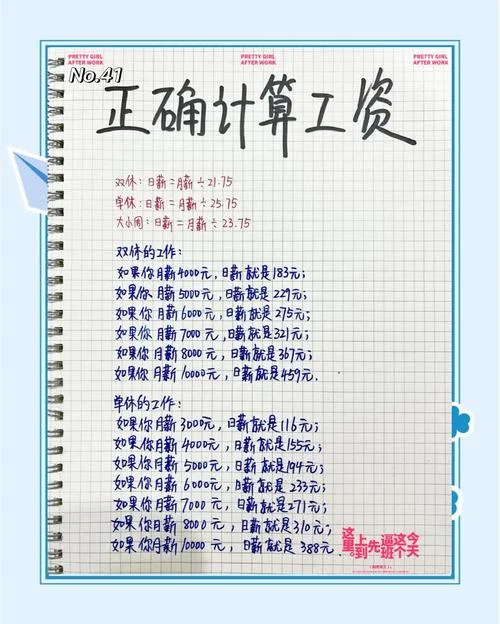 PRETTY GIRL
AFTER WORK
PRETTY GIRL
AFTER WORK
No.41
正确计算工资
双休:日薪=月薪÷21.75
单休:日薪=月薪÷25.75
大小周:日薪=月薪÷23.75
双休的工作:
如果你月薪4000元,日薪就是183元;
如果你月薪5000元,日薪就是229元;
如果你月薪6000元,日薪就是275元;
如果你月薪7000元,日薪就是321元;
如果你月薪8000元,日薪就是367元;
如果你月薪10000元,日薪就是459元.
单休的工作:
如果你月薪3000元,日薪就是116元;
如果你月薪4000元,日薪就是155元;
如果你月薪5000元,日薪就是194元;
如果你月薪6000元,日薪就是233元;
如果你月薪7000元,日薪就是271元;
如果你月薪8000元,日薪就是310元;
如果你月薪10000元,日薪就是388元.
今天
这个
逼班
先
上到
这里。